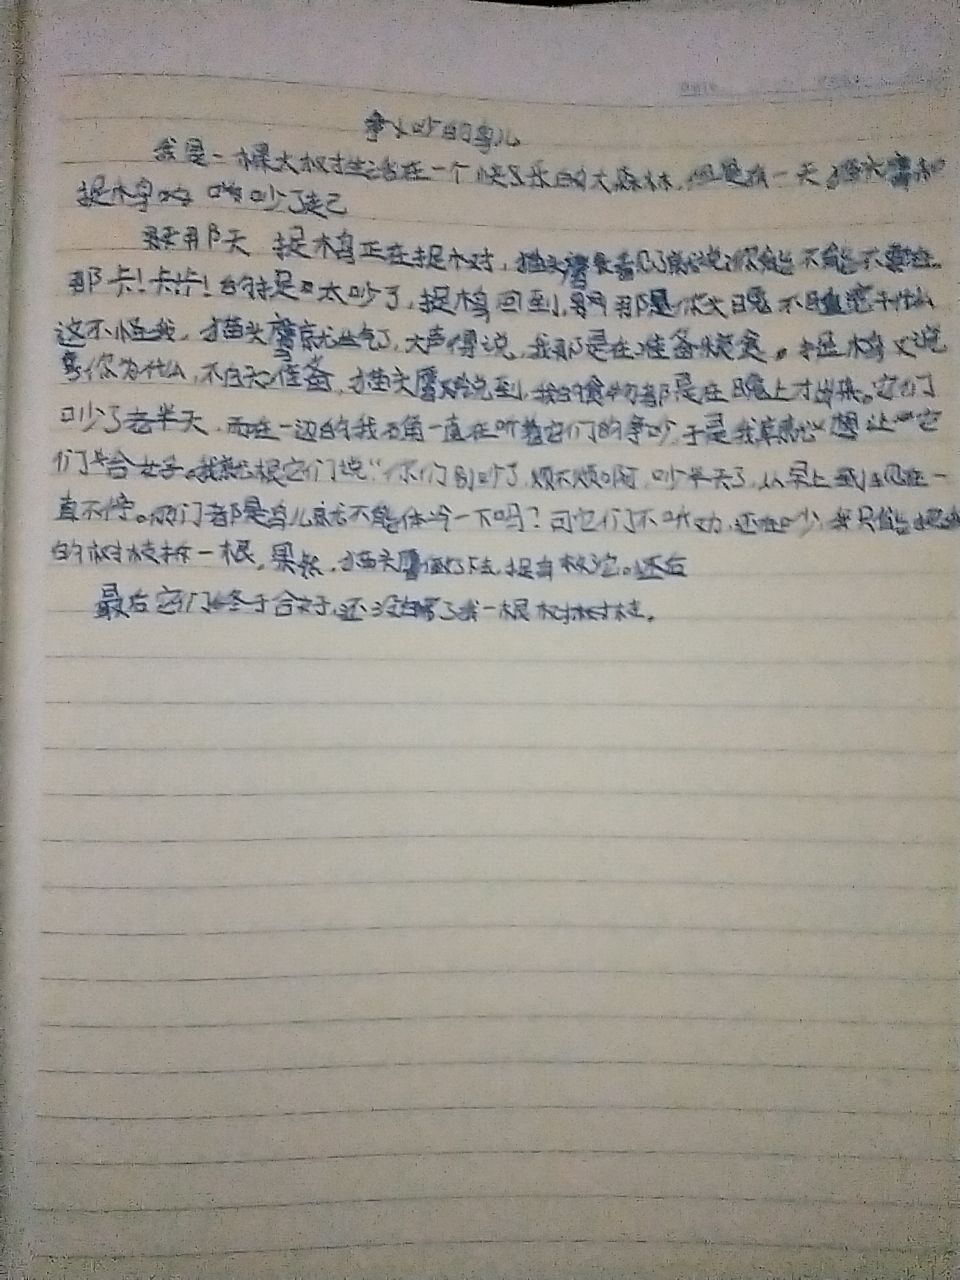 争吵的鸟儿
我是一棵大树生活在一个快乐的大森林,但是有一天猫头鹰和
捉木鸟 吵了起
那天 捉木鸟正在捉木对,猫头鹰 看见了就说:你能不能不要在
那卡!卡卡!的 是太吵了,捉木鸟回到, 那是你大日晚不睡觉干什么
这不怪我,猫头鹰就生气了,大声得说,我那是在准备晚食。捉木鸟又说
你为什么,不白天准备,猫头鹰又说到,我的食物都是在日晚上才出来。它们
吵了老半天,而在一边的我 一直在听着它们的争吵,于是我就想让它
们合好。我就根它们说“你们别吵了,烦不烦啊,吵半天了,从早上到现在一
直不停。你们都是鸟儿就不能体谅一下吗?可它们不听劝,还在吵,我只能把我
的树枝拆一根,果然,猫头鹰 捉 。还后
最后它们终于合好,还没 了我一根树枝。